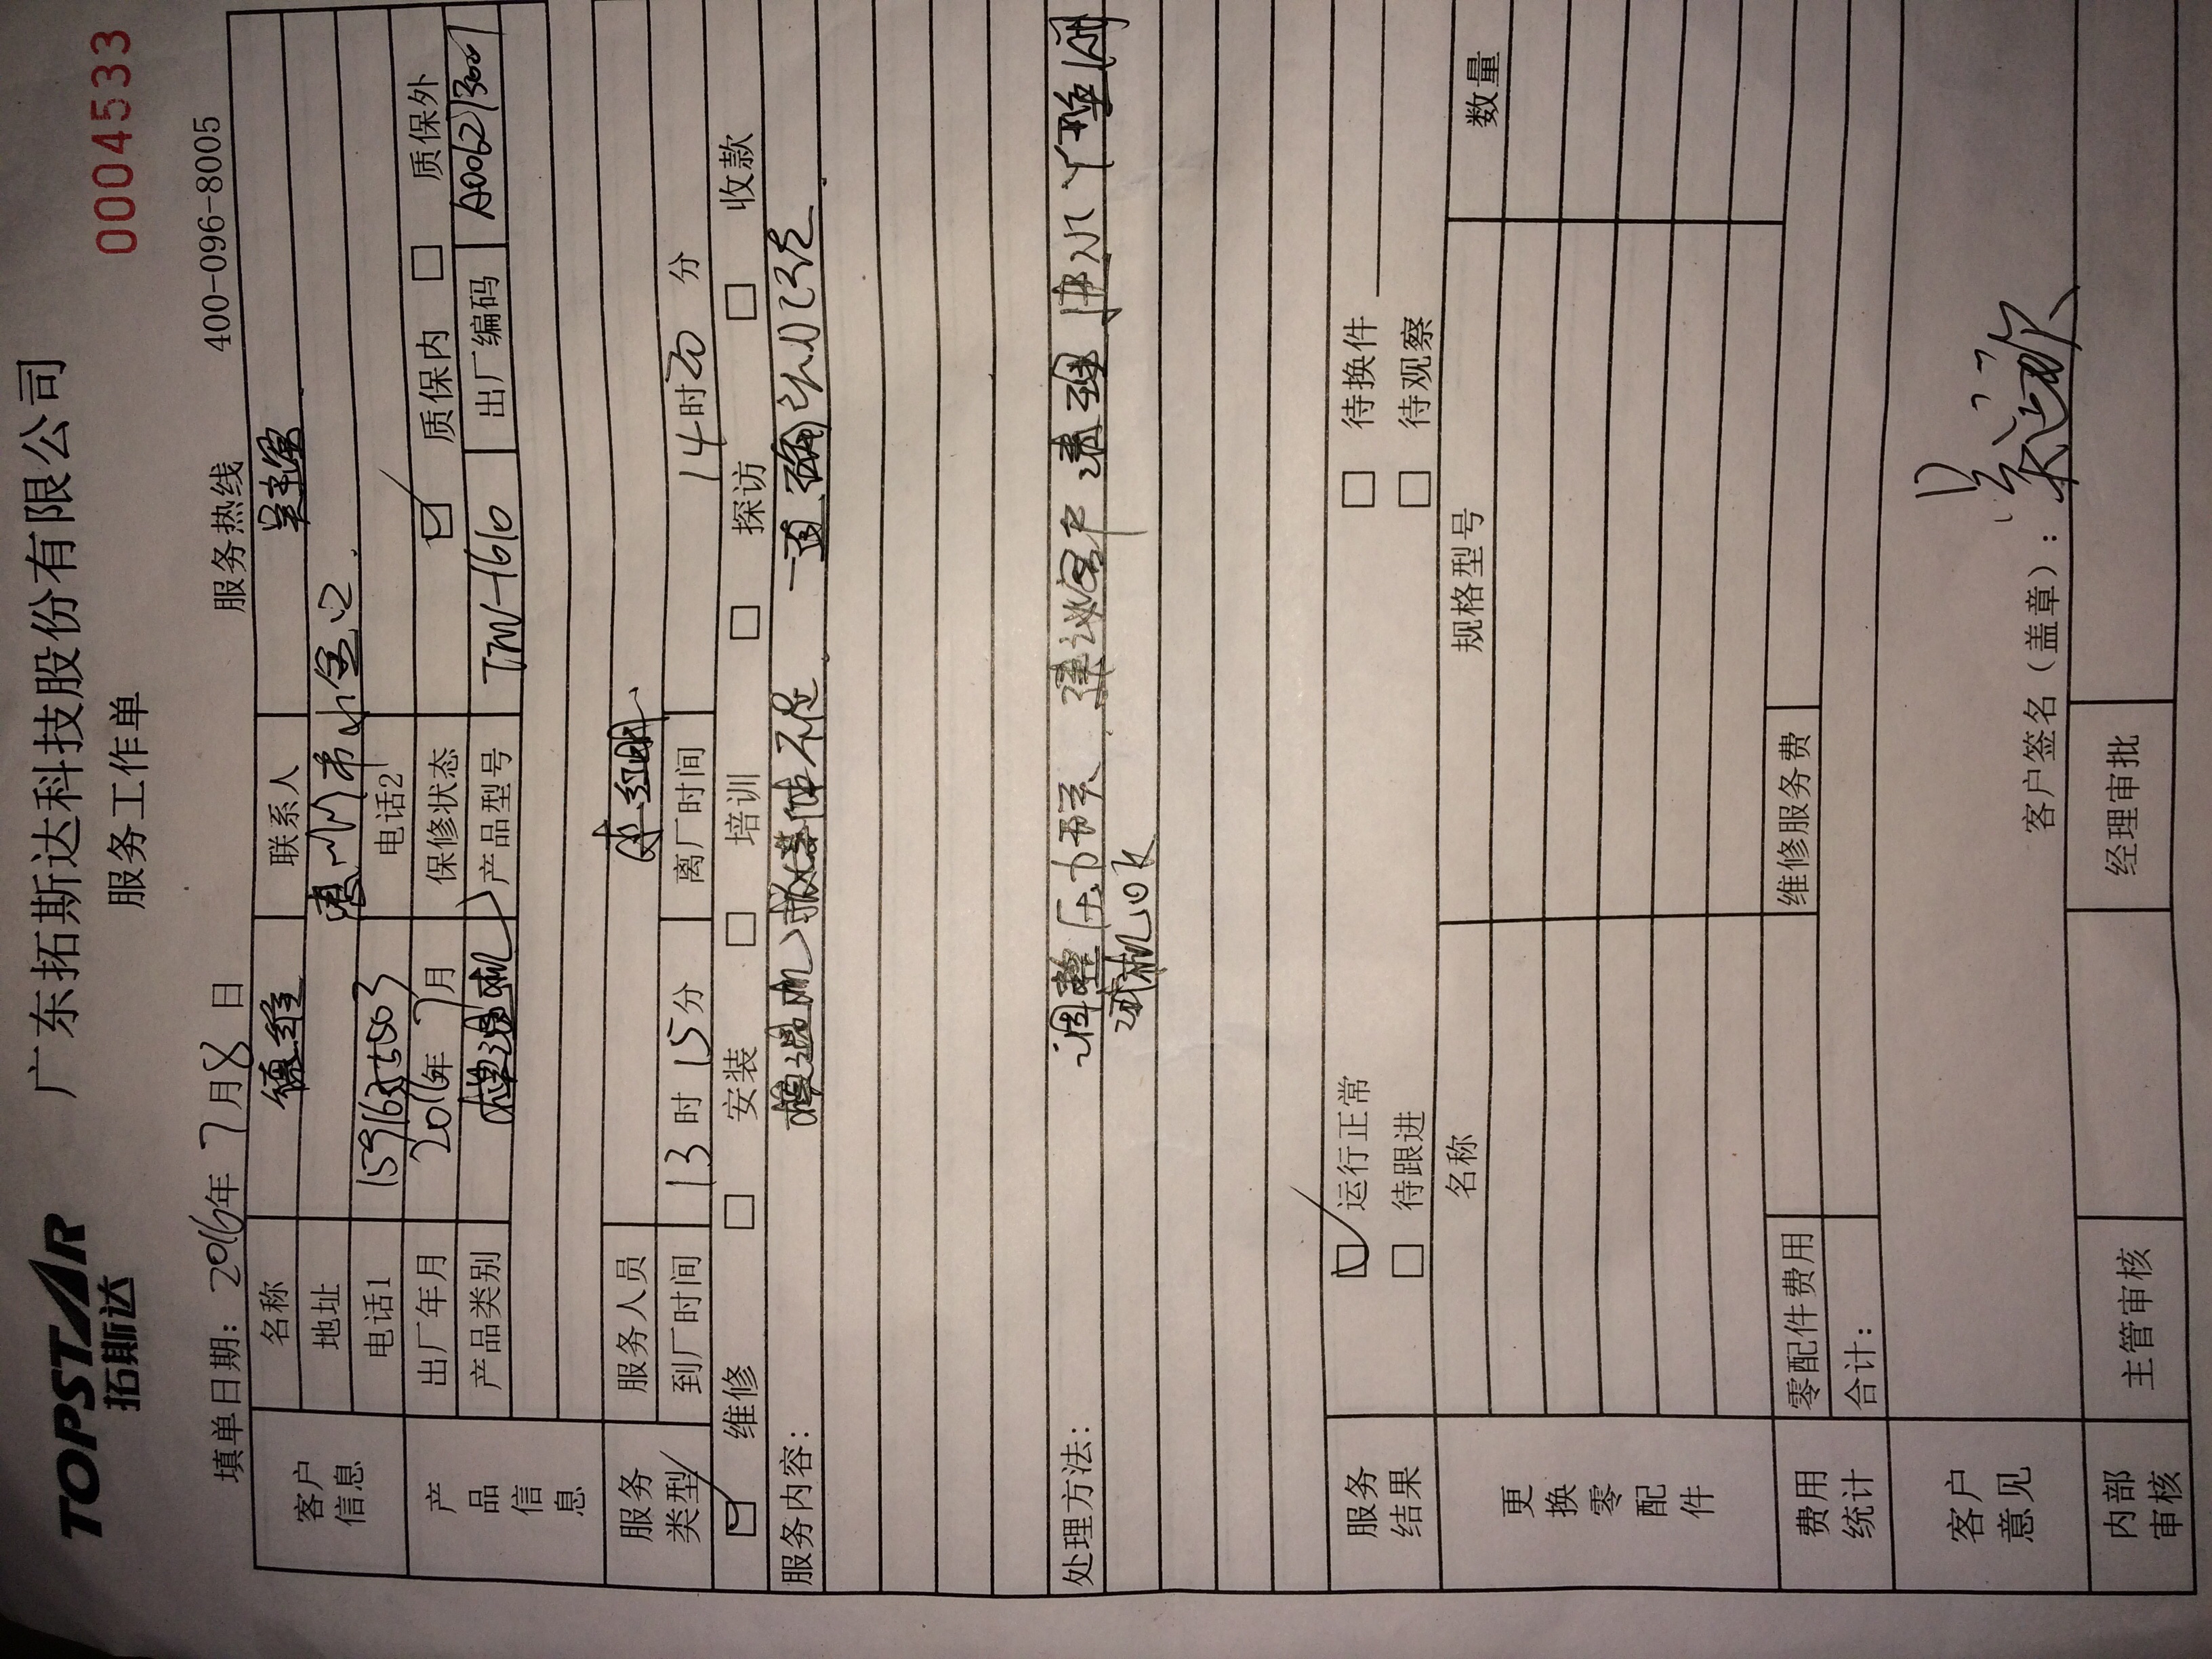 TOPSTAR
拓斯达
广东拓斯达科技股份有限公司
0004533
服务工作单
填单日期: 2016年 7月8日 服务热线 400-096-8005
客户信息
名称 德维 联系人
地址 惠州市
电话1 电话2
产品信息
出厂年月 2016年 7月 保修状态 质保内 质保外
产品类别 模温机 产品型号 TMW-1610 出厂编码 A006213001
服务类型
服务人员 红明
到厂时间 13时15分 离厂时间 14时20分
维修 安装 培训 探访 收款
服务内容: 模温机 媒体不足
处理方法: 调整压力开关 清理
试机OK
服务结果
运行正常 待换件
待跟进 待观察
更换零配件
名称 规格型号 数量
费用统计
零配件费用 维修服务费
合计:
客户意见
客户签名(盖章):
内部审核
主管审核 经理审批